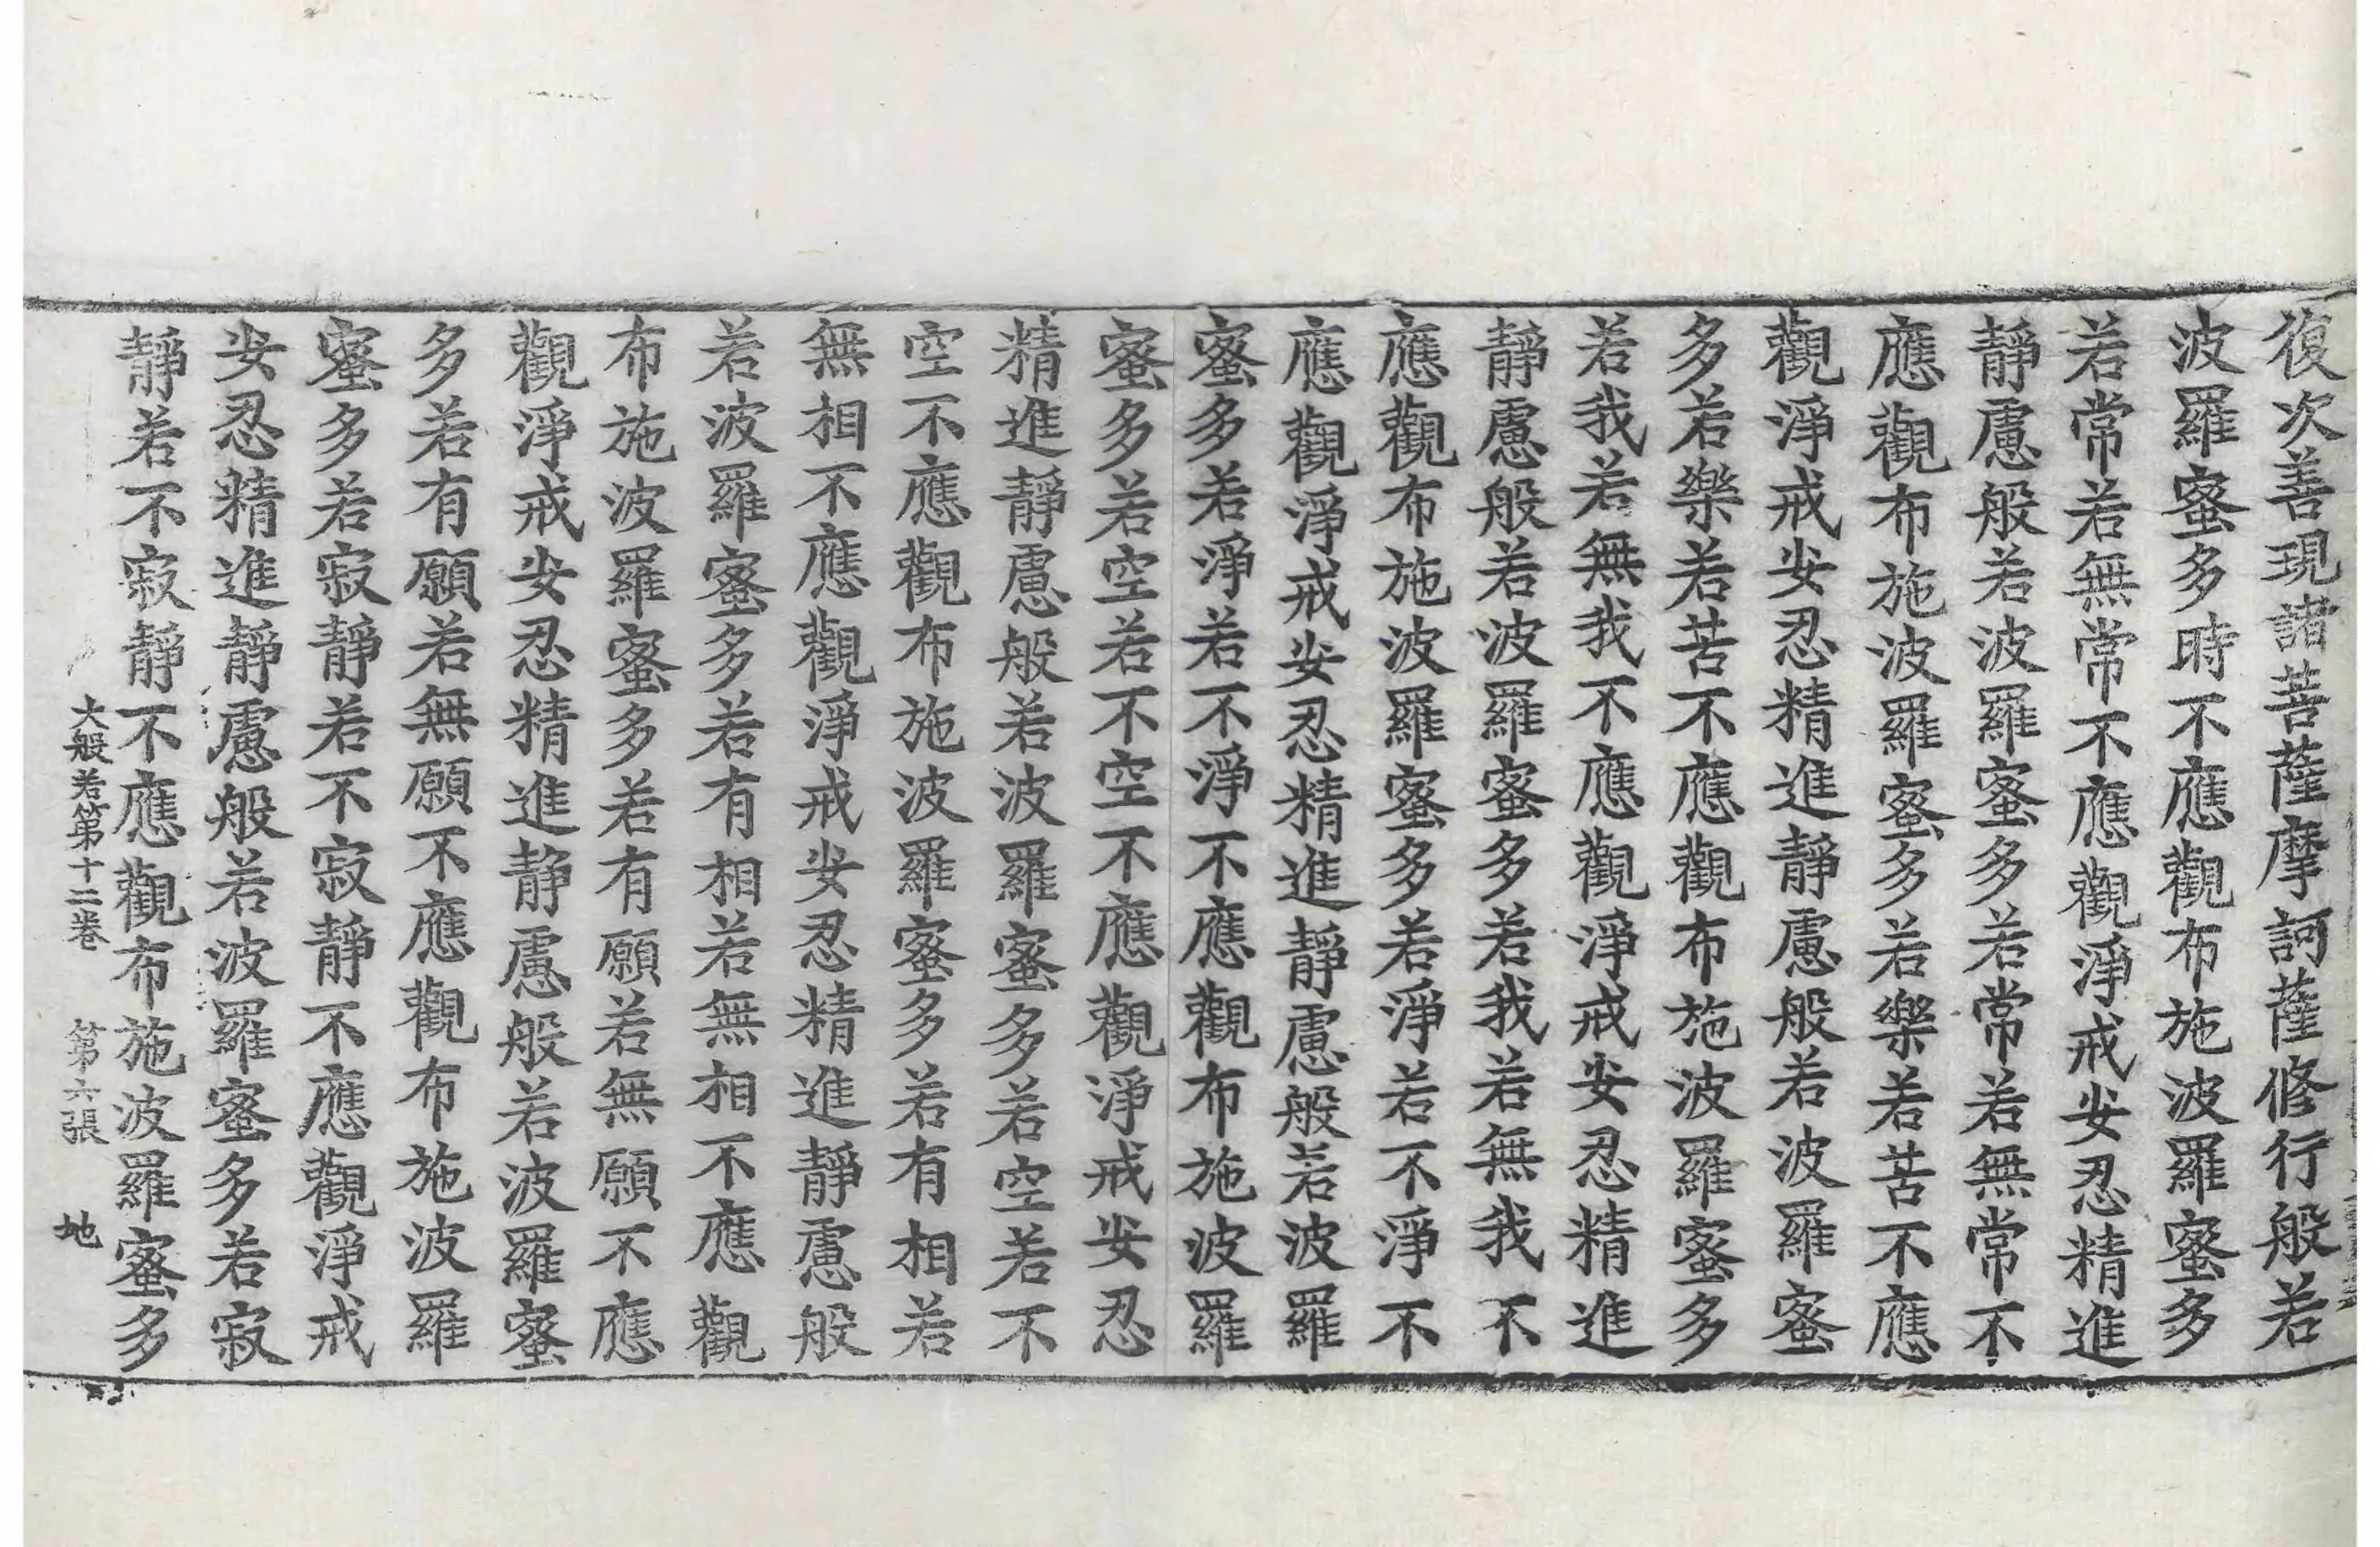 復次善現諸菩薩摩訶薩修行般若
波羅蜜多時不應觀布施波羅蜜多
若常若無常不應觀淨戒安忍精進
靜慮般若波羅蜜多若常若無常不
應觀布施波羅蜜多若樂若苦不應
觀淨戒安忍精進靜慮般若波羅蜜
多若樂若苦不應觀布施波羅蜜多
若我若無我不應觀淨戒安忍精進
靜慮般若波羅蜜多若我若無我不
應觀布施波羅蜜多若淨若不淨不
應觀淨戒安忍精進靜慮般若波羅
蜜多若淨若不淨不應觀布施波羅
蜜多若空若不空不應觀淨戒安忍
精進靜慮般若波羅蜜多若空若不
空不應觀布施波羅蜜多若有相若
無相不應觀淨戒安忍精進靜慮般
若波羅蜜多若有相若無相不應觀
布施波羅蜜多若有願若無願不應
觀淨戒安忍精進靜慮般若波羅蜜
多若有願若無願不應觀布施波羅
蜜多若寂靜若不寂靜不應觀淨戒
安忍精進靜慮般若波羅蜜多若寂
靜若不寂靜不應觀布施波羅蜜多
大般若第十二卷 第六張 地